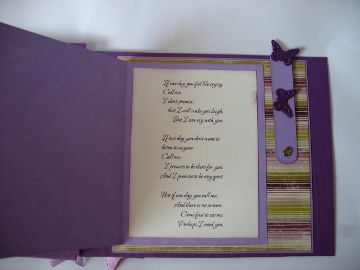 If one day you feel like crying
Call me.
I don't promise
that I will make you laugh
But I can cry with you.
If one day you don't want to
listen to anyone
Call me...
I promise to be there for you
And I promise to be very quiet
But if one day you call me...
And there is no answer
Come fast to see me
Perhaps I need you.